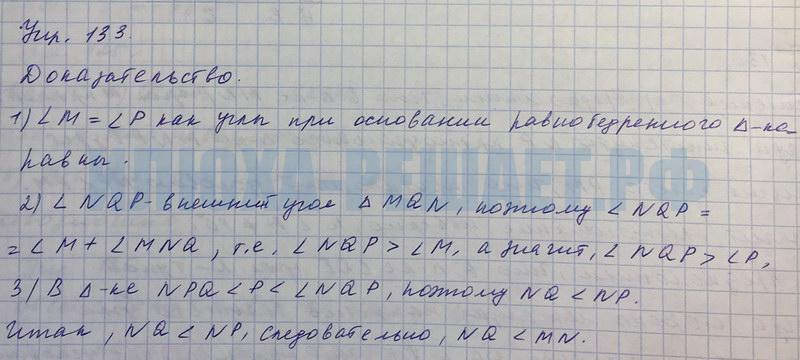 Упр. 133.
Доказательство.
1) ∠M = ∠P как углы при основании равнобедренного Δ-ка
равны.
КЛЮХА-РЕШАЕТ.РФ
2) ∠NQP - внешний угол ΔMQN, поэтому ∠NQP =
= ∠M + ∠MNQ, т.е. ∠NQP > ∠M, а значит, ∠NQP > ∠P,
3) В Δ-ке NPQ ∠P < ∠NQP, поэтому NQ < NP.
Итак, NQ < NP, следовательно, NQ < MN.